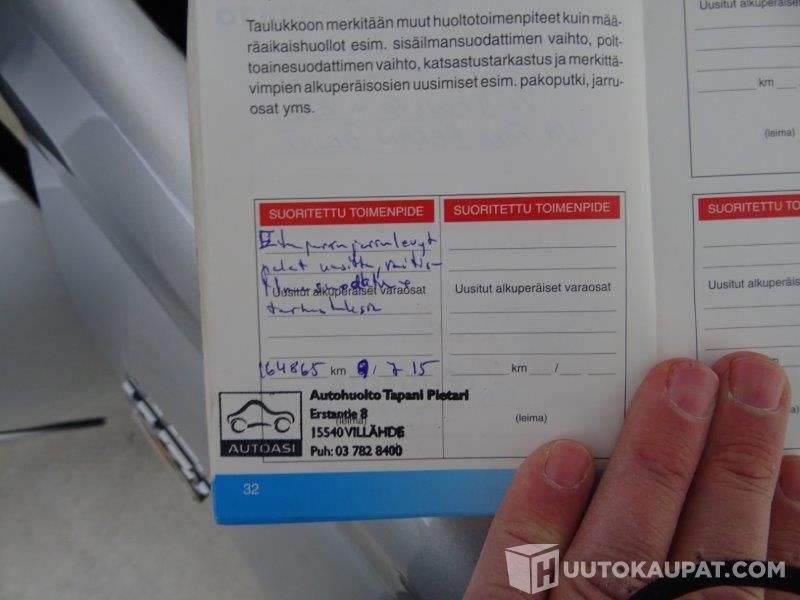 Taulukkoon merkitään muut huoltotoimenpiteet kuin mää-
räaikaishuollot esim. sisäilmansuodattimen vaihto, polt-
toainesuodattimen vaihto, katsastustarkastus ja merkittä-
vimpien alkuperäisosien uusimiset esim. pakoputki, jarru-
osat yms.
SUORITETTU TOIMENPIDE
Etu jarrulevyt
palat uusittu, raitis-
ilmasuodatin
Uusitut alkuperäiset varaosat
tarkastuksia
164865 km 9/7 15
(leima)
AUTOASI
Autohuolto Tapani Pietari
Erstantie 8
15540 VILLÄHDE
Puh: 03 782 8400
SUORITETTU TOIMENPIDE
Uusitut alkuperäiset varaosat
km /
(leima)
32
Uusitut alkuperäis
km
(leima)
SUORITETTU TO
Uusitut alkuperäis
HUUTOKAUPAT.COM